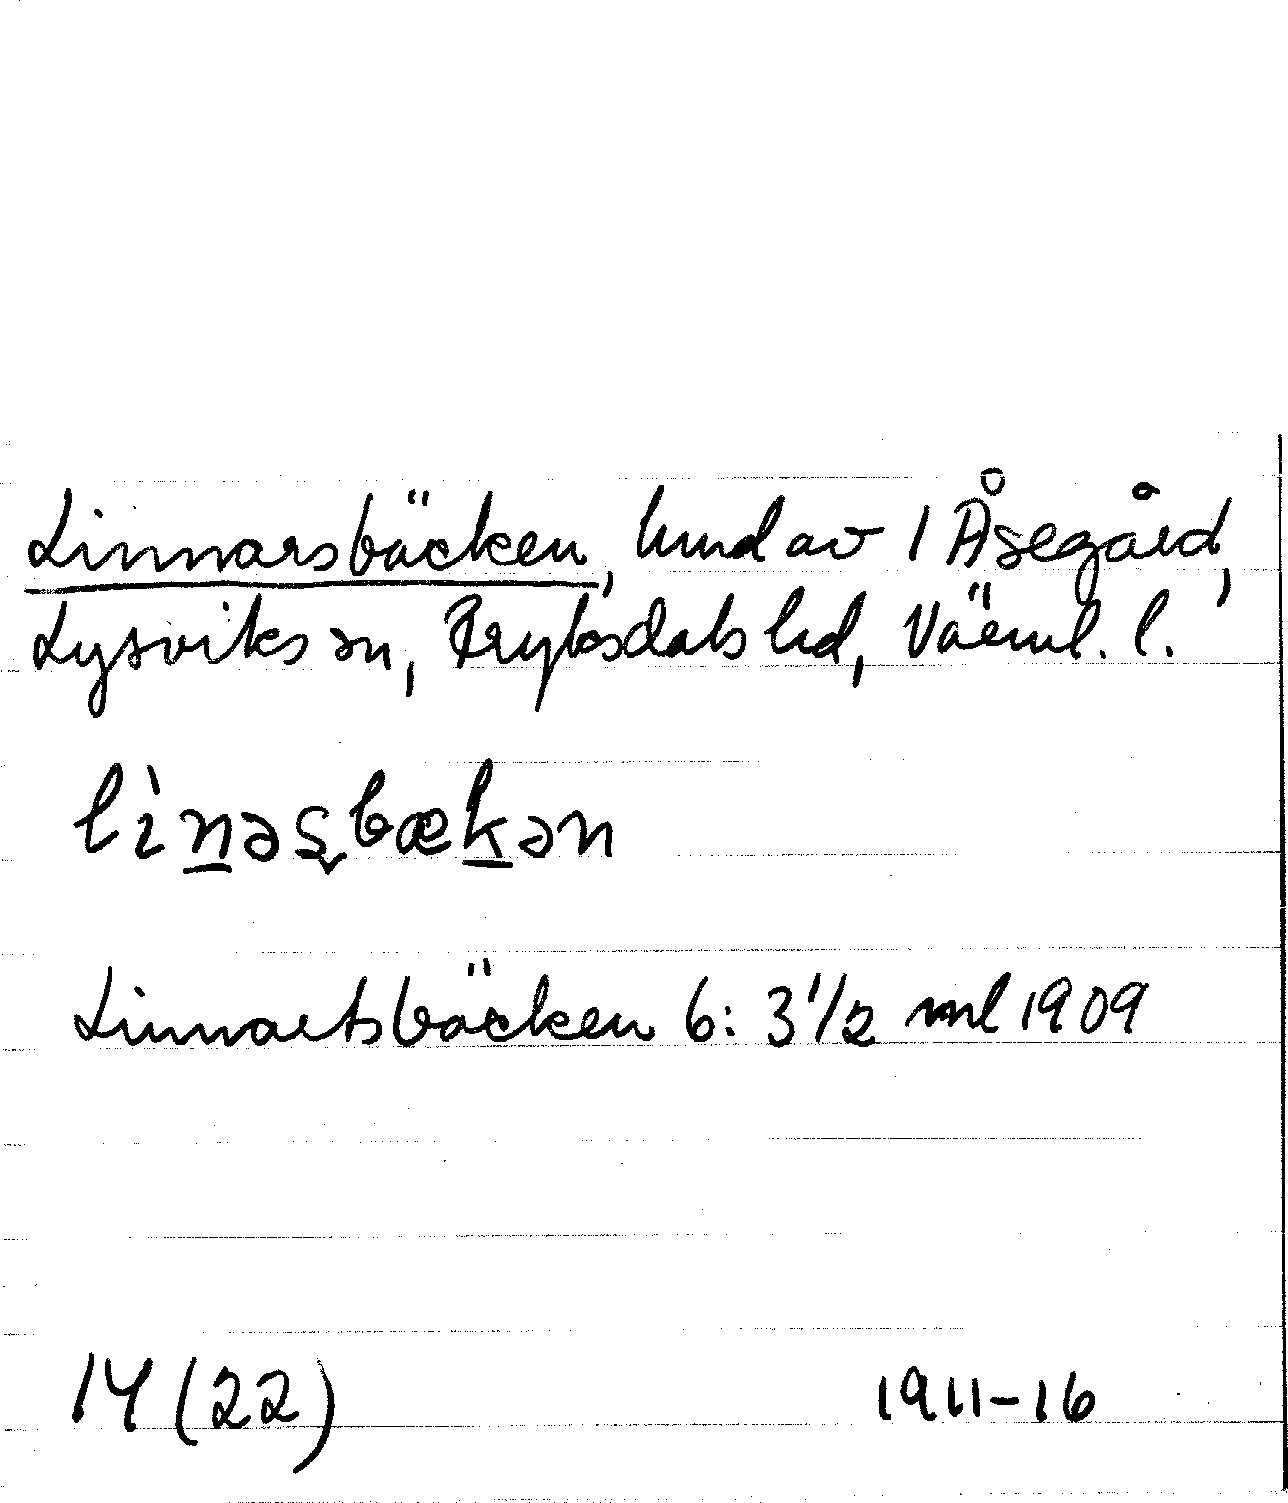 Linnarsbäcken, hmd av 1 Åsegård,
Lysviks sn, Fryksdals hd, Värml. l.
lìnəsbækən
Linnartsbäcken 6: 3 1/2 ml 1909
14 (22) 1911-16